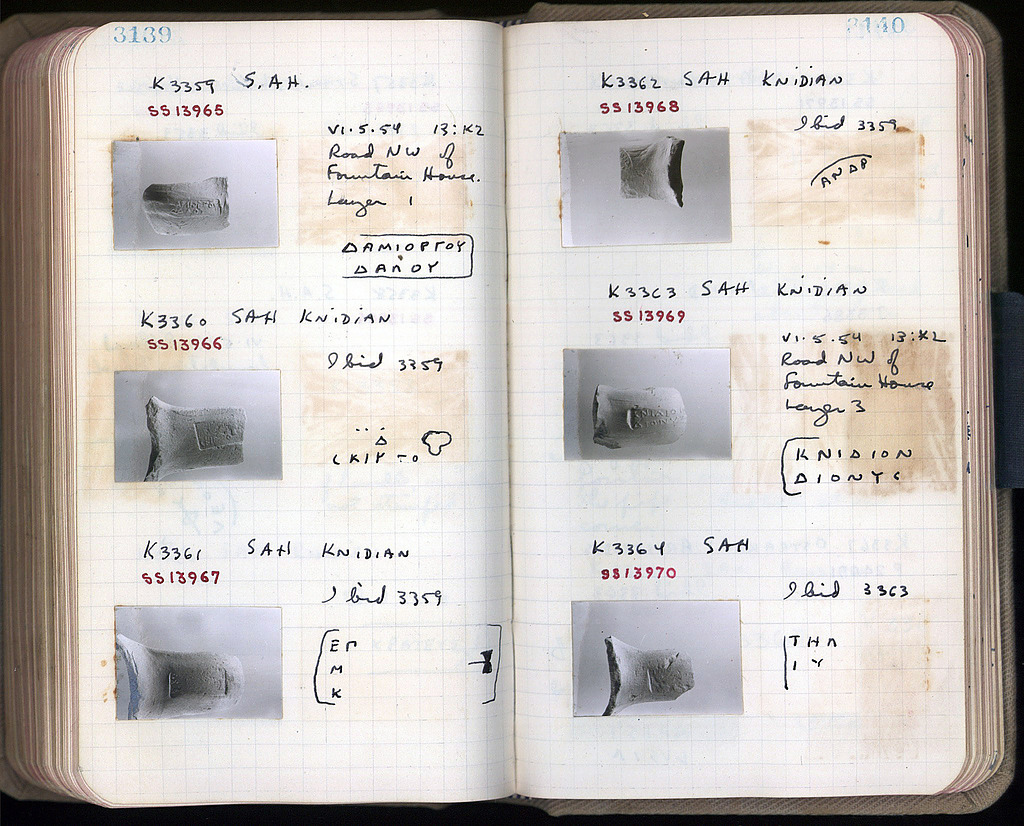 3139
K3359 S.AH.
SS13965
VI.5.54 13:K2
Road NW of
Fountain House.
Layer 1
ΔΑΜΙΟΡΓΟΥ
ΔΑΜΟΥ
K3360 SAH KNIDIAN
SS13966
Ibid 3359
Δ
K3361 SAH KNIDIAN
SS13967
Ibid 3359
ΕΠ
Μ
Κ
3140
K3362 SAH KNIDIAN
SS13968
Ibid 3359
ΑΝΔΡ
K3363 SAH KNIDIAN
SS13969
VI.5.54 13:K2
Road NW of
Fountain House
Layer 3
ΚΝΙΔΙΟΝ
ΔΙΟΝΥC
K3364 SAH
SS13970
Ibid 3363
ΤΗΛ
Ι Υ